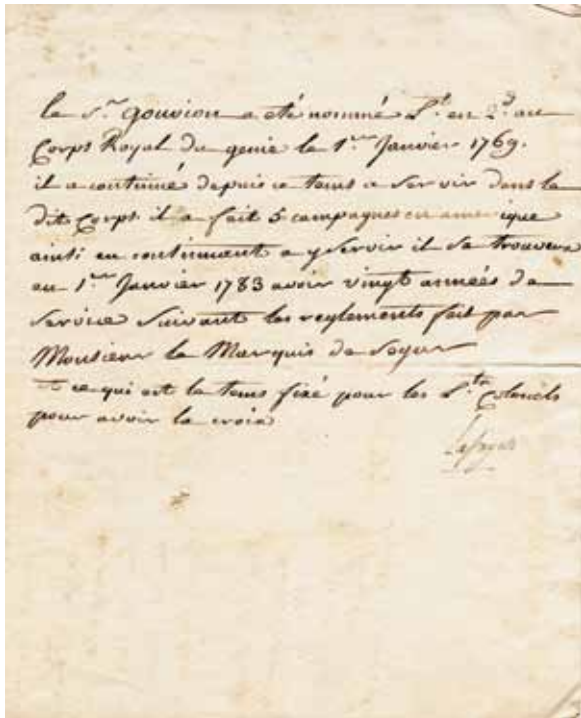 le S.r gouvion a eté nommé L.t en 2.d au
Corps Royal du genie le 1.er Janvier 1769.
il a continué depuis ce tems a servir dans le
dit Corps il a fait 5 campagnes en amerique
ainsi en continuant a y servir il se trouvera
au 1.er Janvier 1783 avoir vingt années de
service suivant les reglements fait par
Monsieur le Marquis de Segur
et ce qui est le tems fixé pour les L.ts Colonels
pour avoir la croix